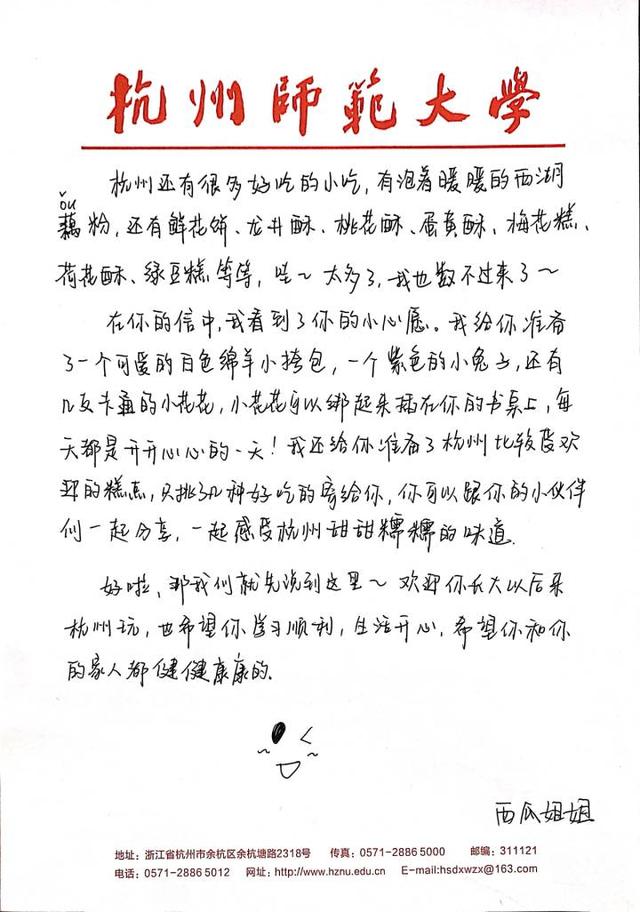 杭州師範大學
杭州还有很多好吃的小吃，有泡着暖暖的西湖
ǒu
藕粉，还有鲜花饼、龙井酥、桃花酥、蛋黄酥、梅花糕、
荷花酥、绿豆糕等等，哇～太多了，我也数不过来了～
在你的信中，我看到了你的小心愿。我给你准备
了一个可爱的白色绵羊小挎包，一个紫色的小兔子，还有
几支卡通的小花花，小花花可以绑起来插在你的书桌上，每
天都是开开心心的一天！我还给你准备了杭州比较受欢
迎的糕点，只挑了几种好吃的寄给你，你可以跟你的小伙伴
们一起分享，一起感受杭州甜甜糯糯的味道.
好啦，那我们就先说到这里～欢迎你长大以后来
杭州玩，也希望你学习顺利，生活开心，希望你和你
的家人都健健康康的.
西瓜姐姐
地址：浙江省杭州市余杭区余杭塘路2318号 传真：0571-2886 5000 邮编：311121
电话：0571-2886 5012 网址：http://www.hznu.edu.cn E-mail:hsdxwzx@163.com